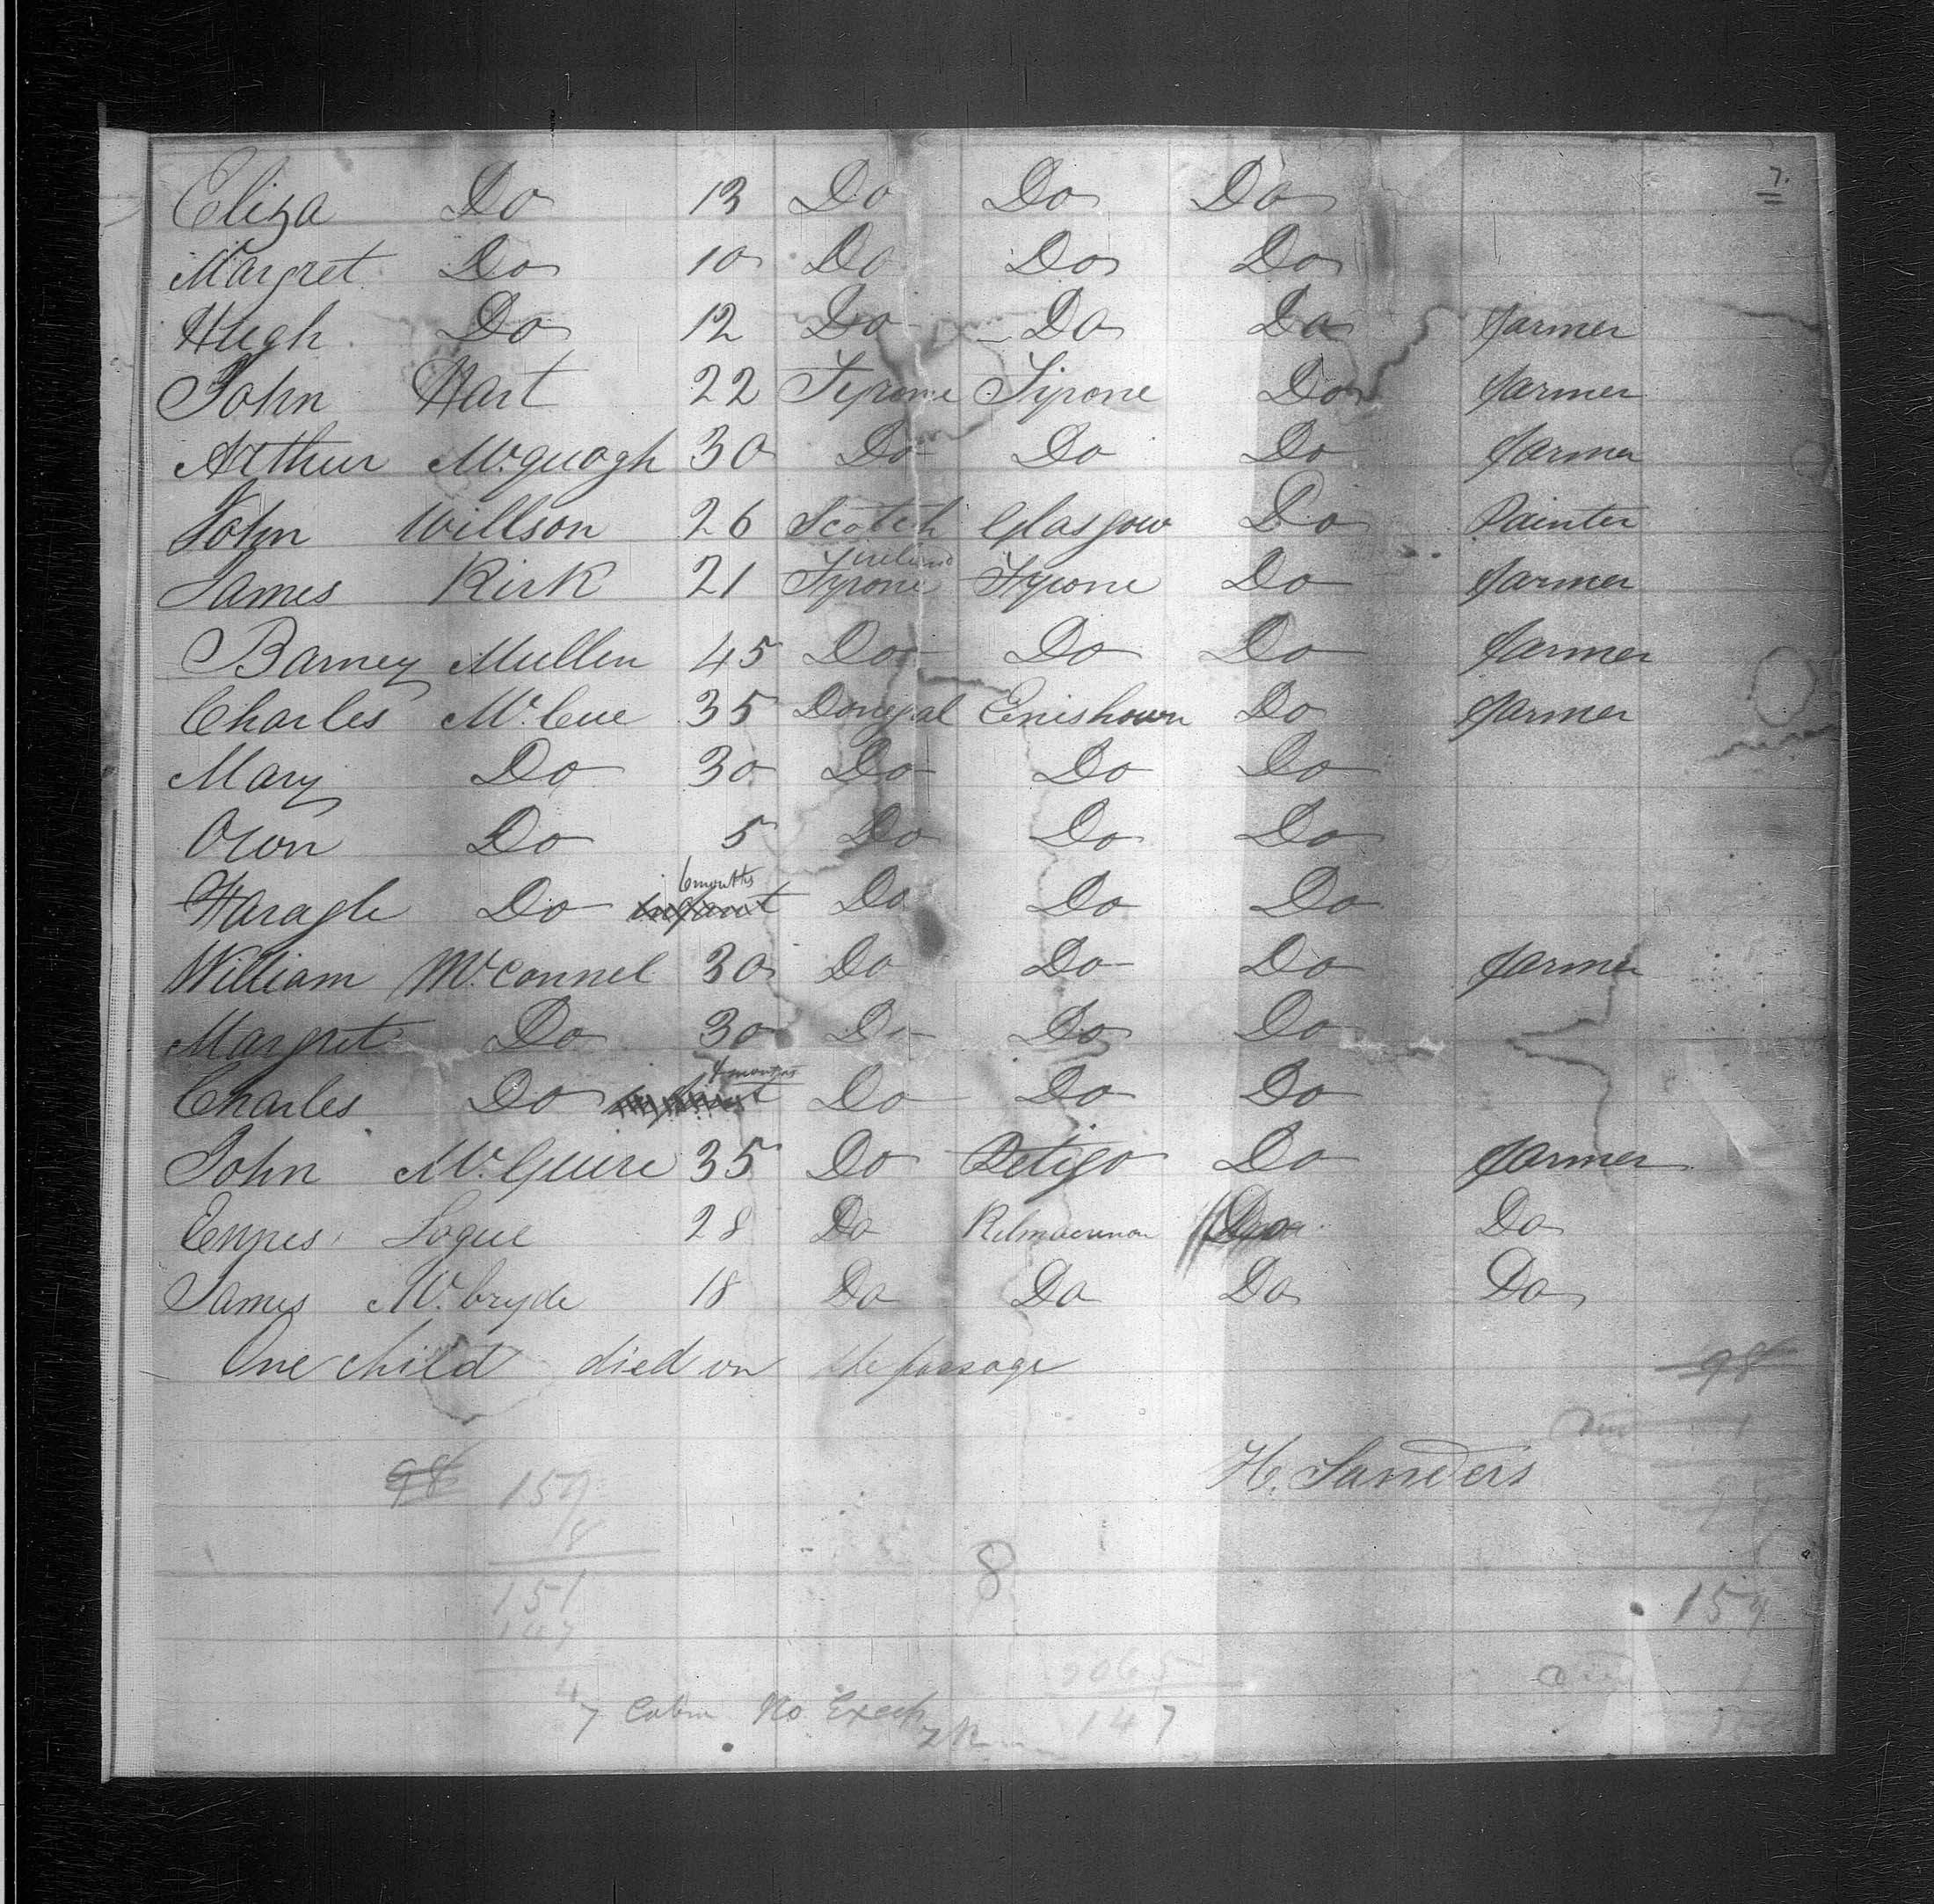 7.
Eliza Do 13 Do Do Do
Margret Do 10 Do Do Do
Hugh Do 12 Do Do Do farmer
John Hart 22 Tyrone Tyrone Do farmer
Arthur McQuogh 30 Do Do Do farmer
John Willson 26 Scotch Glasgow Do Painter
ireland
James Kirk 21 Tyrone Tyrone Do farmer
Barney Mullen 45 Do Do Do farmer
Charles McCue 35 Donegal Enishown Do farmer
Mary Do 30 Do Do Do
Own Do 5 Do Do Do
6 months
Do infant Do Do Do
William McConnel 30 Do Do Do farmer
Margret Do 30 Do Do Do
4 months
Charles Do Do Do Do
John McGuire 35 Do Petigo Do farmer
Logue 28 Do Do Do
James McBryde 18 Do Do Do Do
One child died on the passage
98
H. Sanders
98 159
18
8
151
159
147
7 Cabin No